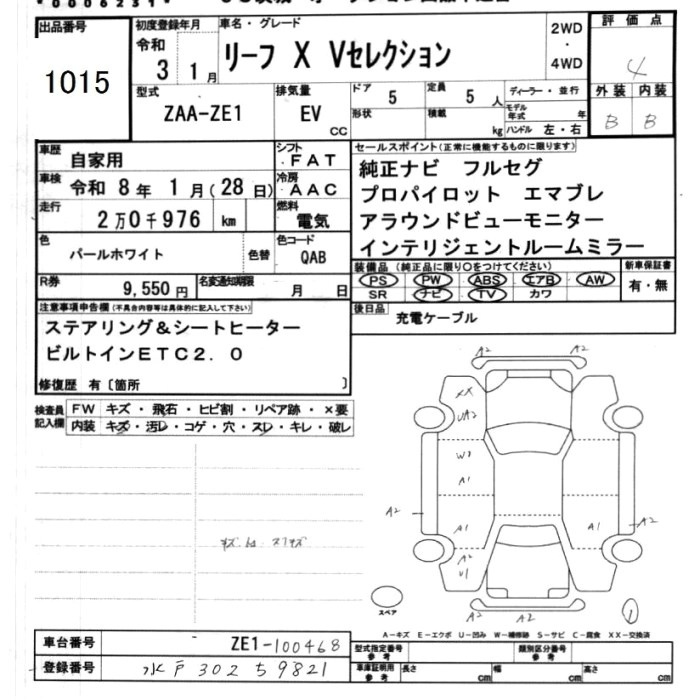 出品番号
1015
初度登録年月
令和
3 1月
車名・グレード
リーフ X Vセレクション
2WD
・
4WD
評価点
4
外装 内装
B B
型式
ZAA-ZE1
排気量
EV
CC
ドア
5
定員
5人
形状
積載
kg
ディーラー・並行
モデル年式 年
ハンドル 左・右
車歴
自家用
シフト
FAT
車検
令和 8年 1月(28日)
冷房
AAC
走行
2万0千976 km
燃料
電気
色
パールホワイト
色替
色コード
QAB
R券
9,550円
名変通知期限
月 日
セールスポイント(正常に機能するものに限ります)
純正ナビ フルセグ
プロパイロット エマブレ
アラウンドビューモニター
インテリジェントルームミラー
装備品(純正品に限り○をつけてください)
PS PW ABS エアB AW
SR ナビ TV カワ
新車保証書
有・無
後日品
充電ケーブル
注意事項申告欄(不具合内容等は具体的に記入して下さい)
ステアリング&シートヒーター
ビルトインETC2.0
修復歴 有〔箇所 〕
検査員記入欄
FW キズ・飛石・ヒビ割・リペア跡・×要
内装 キズ・汚レ・コゲ・穴・スレ・キレ・破レ
A2
A2
XX
UA2
W3
A1
A2
A1
A1
A2
A2
U1
A2
スペア
1
A-キズ E-エクボ U-凹み W-補修跡 S-サビ C-腐食 XX-交換済
車台番号
ZE1-100468
登録番号
水戸 302 ち 9821
型式指定番号
参考
類別区分番号
参考
車庫証明用
参考
長さ cm
幅 cm
高さ cm